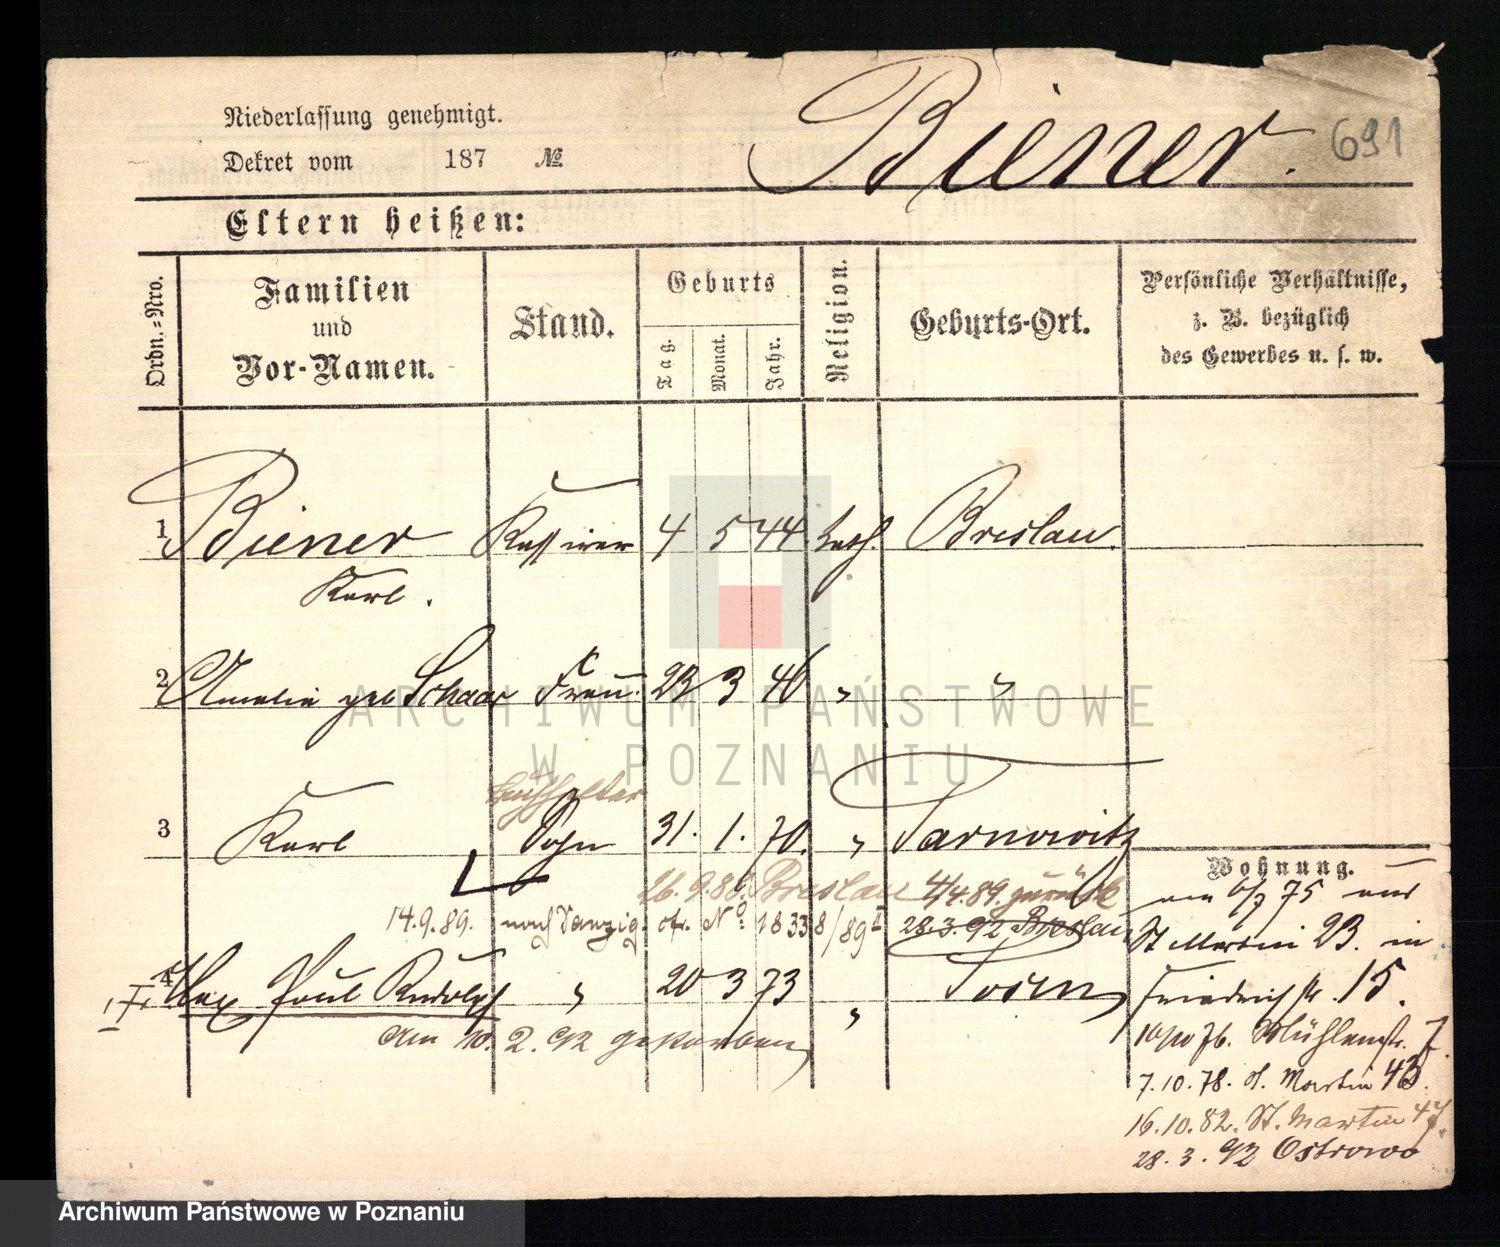 Niederlassung genehmigt.
Dekret vom 187 №
Biener.
691
Eltern heißen:
Ordn.=Nro.
Familien
und
Vor-Namen.
Stand.
Geburts
Tag.
Monat.
Jahr.
Religion.
Geburts-Ort.
Persönliche Verhältnisse,
z. B. bezüglich
des Gewerbes u. s. w.
1 Biener Kassirer 4 5 44. kath. Breslau.
Karl.
2 Amalie geb Schaar Frau. 23 3 46 " "
ARCHIWUM PAŃSTWOWE
W POZNANIU
Buchhalter
3 Karl Sohn 31. 1. 70. " Tarnowitz
Wohnung.
26. 9. 88. Breslau 4/4. 89. zurück
14. 9. 89. nach Danzig. cfr. No 1833 8/89 II 28. 3. 92 Breslau
4 Max Paul Rudolph " 20 3 73 " Posen
I.
Am 10. 2. 92 gestorben
am 6/7 75 aus
St Martin 23. in
Friedrichstr. 15.
10/10 76. Mühlenstr. 7.
7. 10. 78. St. Martin 43.
16. 10. 82. St. Martin 47.
28. 3. 92 Ostrowo
Archiwum Państwowe w Poznaniu